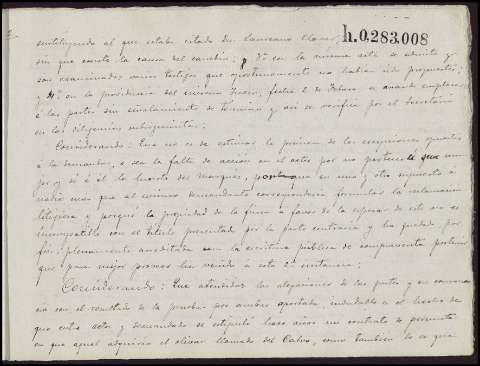 h.0.283.008
sustituyendo al que estaba citado de Laureano Blanco,
sin que conste la causa del cambio; y 3º en la misma acta se admite y
son examinados varios testigos que oportunamente no habían sido propuestos;
y 4º en la providencia del mismo Juez, fecha 2 de Febrero se manda emplazar
á las partes sin señalamiento de término y así se verificó por el Secretario
en las diligencias subsiguientes.
Considerando: Que no es de estimar la primera de las excepciones opuestas
á la demanda, ó sea la falta de acción en el actor por no pertenecer
á él la huerta del Marqués, porque en uno y otro supuesto á
nadie mas que al mismo demandante correspondería formular la reclamación
litigiosa y porque la propiedad de la finca á favor de la esposa de este no es
incompatible con el título presentado por la parte contraria y ha quedado por
fin plenamente acreditada con la escritura pública de compraventa
que para mejor proveer ha venido á esta 2ª instancia;
Considerando: Que atendidas las alegaciones de las partes y en
con el resultado de la prueba por ambas aportada, indudable es el hecho de
que entre actor y demandado se estipuló hace años un contrato de permuta
en que aquel adquiría el olivar llamado del Calvo, como también lo es que